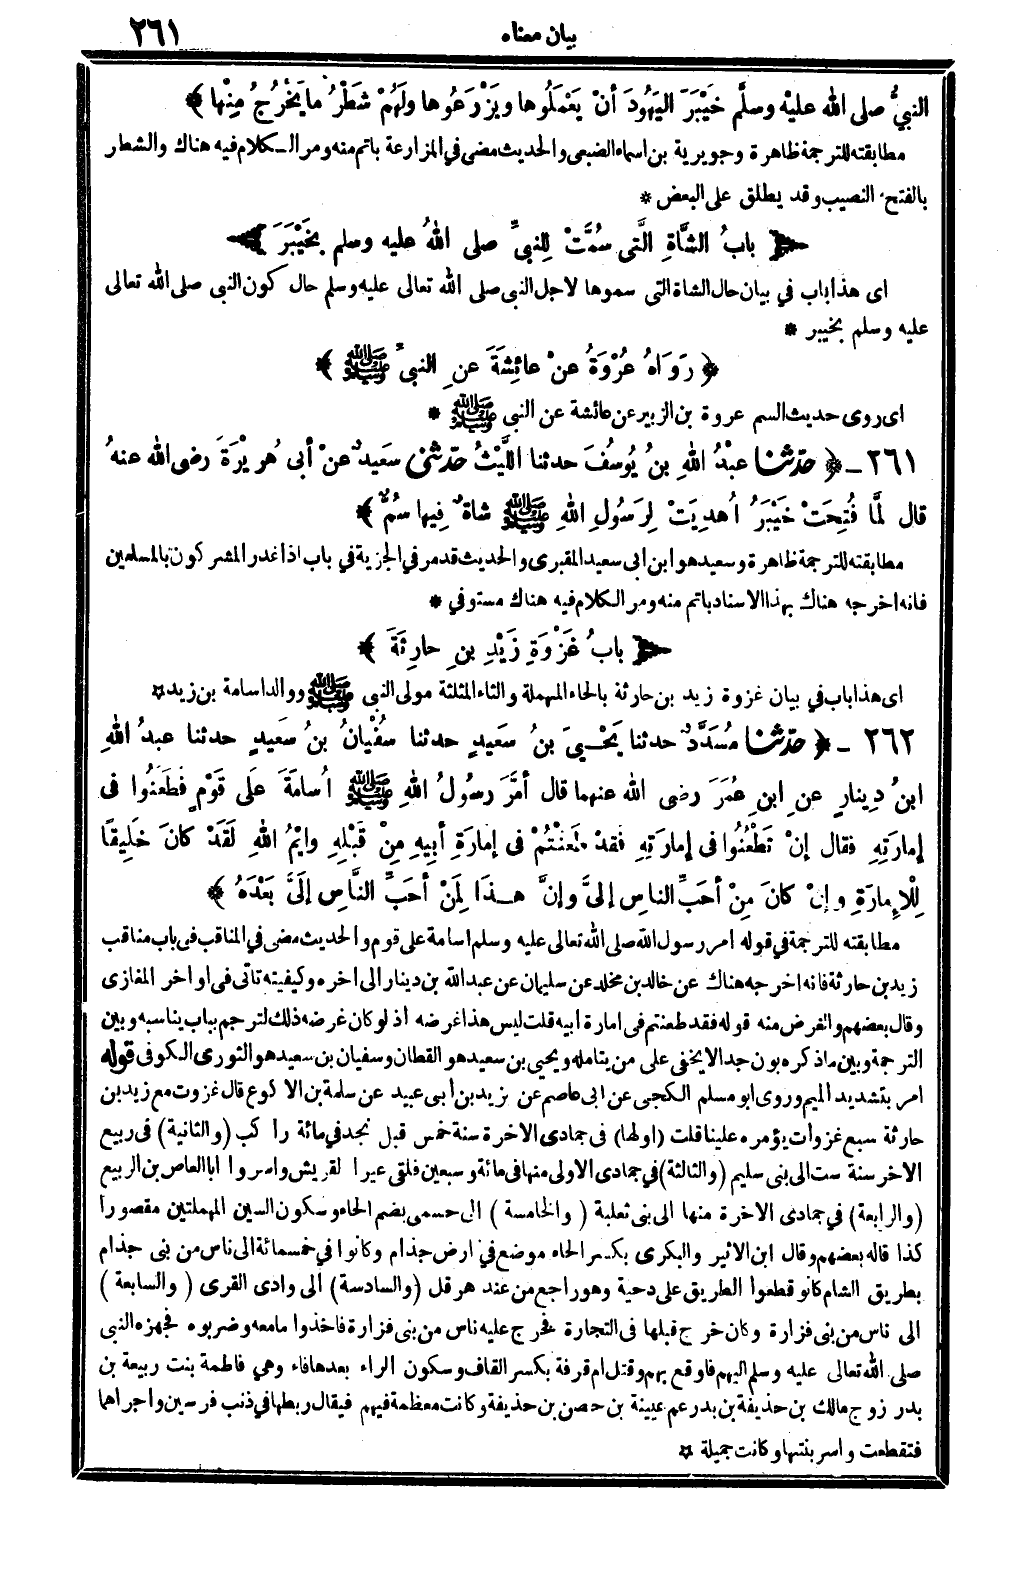 بيان معناه
٢٦١
النبيُّ صلى الله عليْه وسلَّم خَيْبَرَ اليَهُودَ أنْ يَعْمَلُوها ويَزْرَعُوها ولَهُمْ شَطْرُ ما يَخْرُجُ مِنْها ﴾
مطابقته للترجمة ظاهرة وجويرية بن اسماء الضبعى والحديث مضى في المزارعة باتم منه ومر الكلام فيه هناك والشطار
بالفتح النصيب وقد يطلق على البعض *
﴿ بابُ الشَّاةِ الَّتِى سُمَّتْ لِلنبيِّ صلى اللهُ عليه وسلم بِخَيْبَرَ ﴾
اى هذا باب في بيان حال الشاة التى سموها لاجل النبى صلى الله تعالى عليه وسلم حال كون النبى صلى الله تعالى
عليه وسلم بخيبر *
﴿ رَوَاهُ عُرْوَةُ عنْ عائِشَةَ عنِ النبيِّ ﷺ ﴾
اى روى حديث السم عروة بن الزبير عن عائشة عن النبى ﷺ *
٢٦١ - ﴿ حدّثنا عبْدُ اللهِ بنُ يُوسُفَ حدثنا اللَّيْثُ حدّثنى سَعيدٌ عنْ أبى هُرَيْرَةَ رضى الله عنهُ
قال لَمَّا فُتِحَتْ خَيْبَرُ اُهدِيَتْ لِرَسُولِ اللهِ ﷺ شاةٌ فِيها سُمٌّ ﴾
مطابقته للترجمة ظاهرة وسعيد هو ابن ابى سعيد المقبرى والحديث قد مر في الجزية في باب اذا غدر المشركون بالمسلمين
فانه اخرجه هناك بهذا الاسناد باتم منه ومر الكلام فيه هناك مستوفي *
﴿ بابُ غَزْوَةِ زَيْدِ بنِ حارِثَةَ ﴾
اى هذا باب في بيان غزوة زيد بن حارثة بالحاء المهملة والثاء المثلثة مولى النبى ﷺ ووالد اسامة بن زيد *
٢٦٢ - ﴿ حدّثنا مُسَدَّدٌ حدثنا يَحْيىَ بنُ سَعيدٍ حدثنا سُفْيانُ بنُ سَعيدٍ حدثنا عبدُ اللهِ
ابنُ دِينارٍ عنِ ابنِ عُمَرَ رضى الله عنهما قال أمَّرَ رسُولُ اللهِ ﷺ اُسامَةَ علَى قَوْمٍ فَطَعَنُوا فى
إمارَتِهِ فقال إنْ تَطْعُنُوا فى إمارَتِهِ فقدْ طَعَنْتُمْ فى إمارَةِ أبِيهِ مِنْ قَبْلِهِ وايْمُ اللهِ لَقَدْ كانَ خَلِيقًا
لِلْإمارَةِ وإنْ كانَ مِنْ أحَبِّ الناسِ إلىَّ وإنَّ هـذَا لَمِنْ أحَبِّ النَّاسِ إلَىَّ بَعْدَهُ ﴾
مطابقته للترجمة في قوله امر رسول الله صلى الله تعالى عليه وسلم اسامة على قوم والحديث مضى في المناقب فى باب مناقب
زيد بن حارثة فانه اخرجه هناك عن خالد بن مخلد عن سليمان عن عبد الله بن دينار الى اخره وكيفيته تاتى فى اواخر المغازى
وقال بعضهم والغرض منه قوله فقد طعنتم فى امارة ابيه قلت ليس هذا غرضه اذ لو كان غرضه ذلك لترجم بباب يناسبه وبين
الترجمة وبين ما ذكره بون جدا لا يخفى على من يتامله ويحيى بن سعيد هو القطان وسفيان بن سعيد هو الثورى الكوفى قوله
امر بتشديد الميم وروى ابو مسلم الكجى عن ابى عاصم عن يزيد بن أبى عبيد عن سلمة بن الاكوع قال غزوت مع زيد بن
حارثة سبع غزوات يؤمره علينا قلت (اولها) فى جمادى الاخرة سنة خمس قبل نجد فى مائة راكب (والثانية) فى ربيع
الاخر سنة ست الى بنى سليم (والثالثة) في جمادى الاولى منها فى مائة وسبعين فلقى عيرا لقريش واسروا ابا العاص بن الربيع
(والرابعة) في جمادى الاخرة منها الى بنى ثعلبة (والخامسة) الى حسمى بضم الحاء وسكون السين المهملتين مقصورا
كذا قاله بعضهم وقال ابن الاثير والبكرى بكسر الحاء موضع في ارض جذام وكانوا في خمسمائة الى ناس من بنى جذام
بطريق الشام كانو قطعوا الطريق على دحية وهو راجع من عند هرقل (والسادسة) الى وادى القرى (والسابعة)
الى ناس من بنى فزارة وكان خرج قبلها فى التجارة فخرج عليه ناس من بنى فزارة فاخذوا ما معه وضربوه فجهزه النبى
صلى الله تعالى عليه وسلم اليهم فاوقع بهم وقتل ام قرفة بكسر القاف وسكون الراء بعدها فاء وهي فاطمة بنت ربيعة بن
بدر زوج مالك بن حذيفة بن بدر عم عيينة بن حصن بن حذيفة وكانت معظمة فيهم فيقال ربطها في ذنب فرسين واجراهما
فتقطعت واسر بنتها وكانت جميلة *